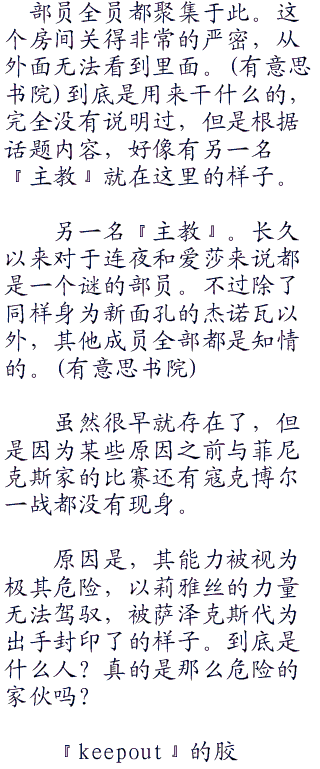 部员全员都聚集于此。这
个房间关得非常的严密，从
外面无法看到里面。(有意思
书院)到底是用来干什么的，
完全没有说明过，但是根据
话题内容，好像有另一名
『主教』就在这里的样子。
另一名『主教』。长久
以来对于连夜和爱莎来说都
是一个谜的部员。不过除了
同样身为新面孔的杰诺瓦以
外，其他成员全部都是知情
的。(有意思书院)
虽然很早就存在了，但
是因为某些原因之前与菲尼
克斯家的比赛还有寇克博尔
一战都没有现身。
原因是，其能力被视为
极其危险，以莉雅丝的力量
无法驾驭，被萨泽克斯代为
出手封印了的样子。到底是
什么人？真的是那么危险的
家伙吗？
『keepout』的胶